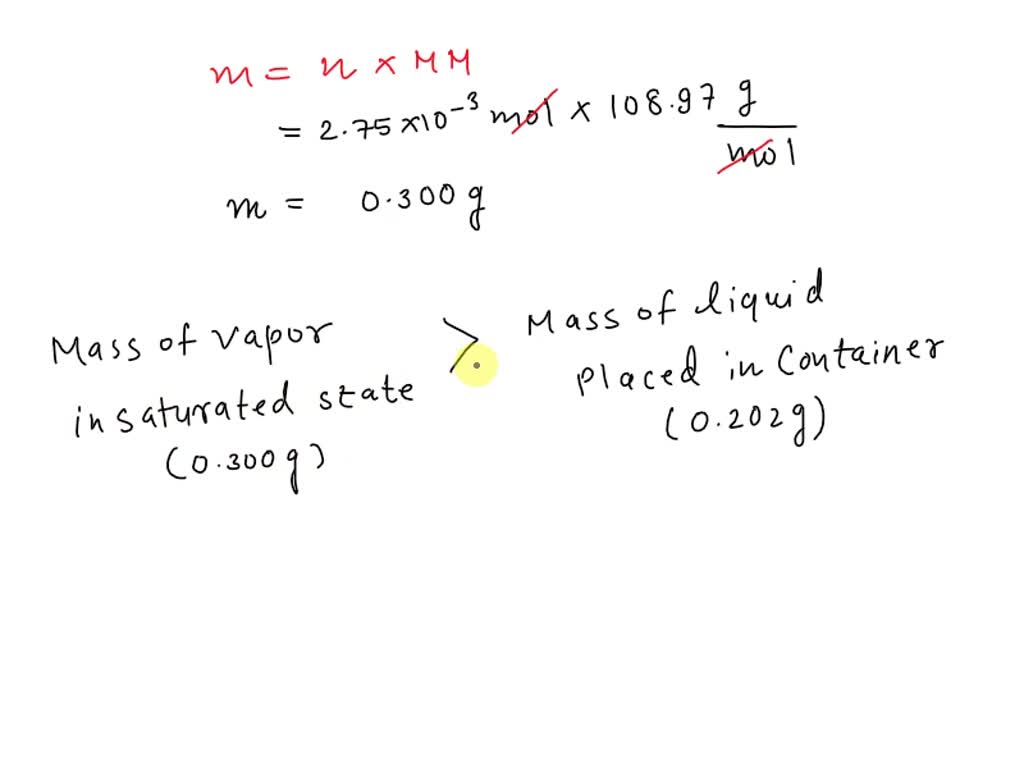 m = n × MM
= 2.75 × 10⁻³ mol × 108.97 g/mol
m = 0.300 g
Mass of vapor in saturated state (0.300 g) > Mass of liquid placed in container (0.202 g)